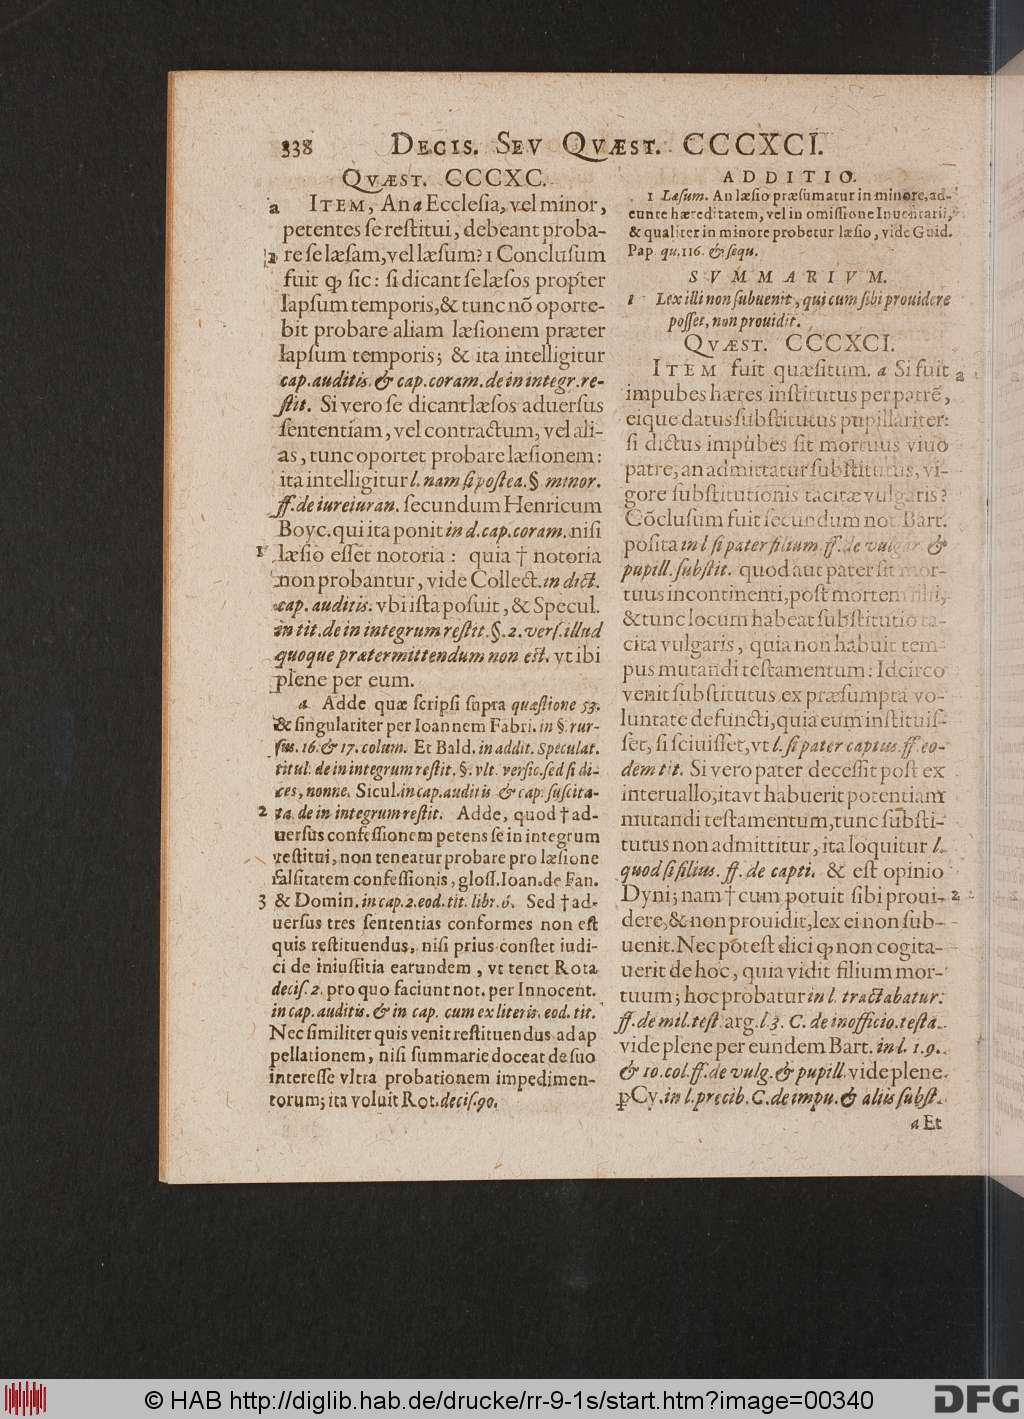 338 DECIS. SEV QVÆST. CCCXCI.
QVÆST. CCCXC.
a ITEM, An a Ecclesia, vel minor,
petentes se restitui, debeant proba-
2 re se læsam, vel læsum? 1 Conclusum
fuit ꝙ sic: si dicant se læsos propter
lapsum temporis, & tunc nō oporte-
bit probare aliam læsionem præter
lapsum temporis; & ita intelligitur
cap. auditis. & cap. coram. de in integr. re-
stit. Si vero se dicant læsos aduersus
sententiam, vel contractum, vel ali-
as, tunc oportet probare læsionem:
ita intelligitur l. nam si postea. §. minor.
ff. de iureiuran. secundum Henricum
Boyc. qui ita ponit in d. cap. coram. nisi
1 læsio esset notoria: quia † notoria
non probantur, vide Collect. in dict.
cap. auditis. vbi ista posuit, & Specul.
in tit. de in integrum restit. §. 2. vers. illud
quoque prætermittendum non est. vt ibi
plene per eum.
a Adde quæ scripsi supra quæstione 53.
& singulariter per Ioannem Fabri. in §. rur-
sus. 16. & 17. colum. Et Bald. in addit. Speculat.
titul. de in integrum restit. §. vlt. versic. sed si di-
ces, nonne. Sicul. in cap. auditis & cap. suscita-
2 ta. de in integrum restit. Adde, quod † ad-
uersus confessionem petens se in integrum
restitui, non teneatur probare pro læsione
falsitatem confessionis, gloss. Ioan. de Fan.
3 & Domin. in cap. 2. eod. tit. libr. 6. Sed † ad-
uersus tres sententias conformes non est
quis restituendus, nisi prius constet iudi-
ci de iniustitia earundem, vt tenet Rota
decis. 2. pro quo faciunt not. per Innocent.
in cap. auditis. & in cap. cum ex literis. eod. tit.
Nec similiter quis venit restituendus ad ap
pellationem, nisi summarie doceat de suo
interesse vltra probationem impedimen-
torum; ita voluit Rot. decis. 90.
ADDITIO.
1 Læsum. An læsio præsumatur in minore, ad-
eunte hæreditatem, vel in omissione Inuentarii,
& qualiter in minore probetur læsio, vide Guid.
Pap. qu. 116. & sequ.
SVMMARIVM.
1 Lex illi non subuenit, qui cum sibi prouidere
posset, non prouidit.
QVÆST. CCCXCI.
ITEM fuit quæsitum. a Si fuit a
impubes hæres institutus per patrē,
eique datus substitutus pupillariter:
si dictus impubes sit mortuus viuo
patre, an admittatur substitutus, vi-
gore substitutionis tacitæ vulgaris?
Cōclusum fuit secundum not. Bart.
posita in l. si pater filium. ff. de vulgar. &
pupill. substit. quod aut pater sit mor-
tuus incontinenti, post mortem filii,
& tunc locum habeat substitutio ta-
cita vulgaris, quia non habuit tem-
pus mutandi testamentum: Idcirco
venit substitutus ex præsumpta vo-
luntate defuncti, quia eum instituis-
set, si sciuisset, vt l. si pater captus. ff. eo-
dem tit. Si vero pater decessit post ex
interuallo; ita vt habuerit potentiam
mutandi testamentum, tunc substi-
tutus non admittitur, ita loquitur l.
quod si filius. ff. de capti. & est opinio
Dyni; nam † cum potuit sibi proui- 2
dere, & non prouidit, lex ei non sub-
uenit. Nec potest dici ꝙ non cogita-
uerit de hoc, quia vidit filium mor-
tuum; hoc probatur in l. tractabatur.
ff. de mil. test. arg. l. 3. C. de inofficio. testa.
vide plene per eundem Bart. in l. 1. 9.
& 10. col. ff. de vulg. & pupill. vide plene
ꝑ Cy. in l. precib. C. de impu. & aliis subst.
a Et
© HAB http://diglib.hab.de/drucke/rr-9-1s/start.htm?image=00340
DFG